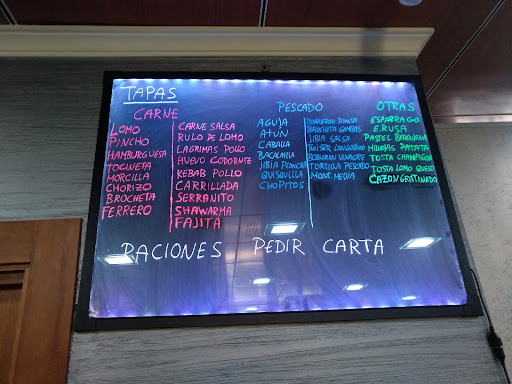 TAPAS
CARNE
LOMO
PINCHO
HAMBURGUESA
TOCINETA
MORCILLA
CHORIZO
BROCHETA
FERRERO
CARNE SALSA
RULO DE LOMO
LAGRIMAS POLLO
HUEVO CODORNIZ
KEBAB POLLO
CARRILLADA
SERRANITO
SHAWARMA
FAJITA
PESCADO
AGUJA
ATUN
CABALLA
BACALAILLA
JIBIA PLANCHA
QUISQUILLA
CHOPITOS
PLANCHA
BROCHETA GAMBAS
JIBIA SALSA
TWISTER LANGOSTINO
BOQUERON VINAGRE
TORTILLA PESCADO
MONT. MELVA
OTRAS
ESPARRAGO
E. RUSA
PASTEL BERENJENA
MIGAS PATATA
TOSTA CHAMPIÑON
TOSTA LOMO QUESO
CAZON GRATINADO
RACIONES PEDIR CARTA